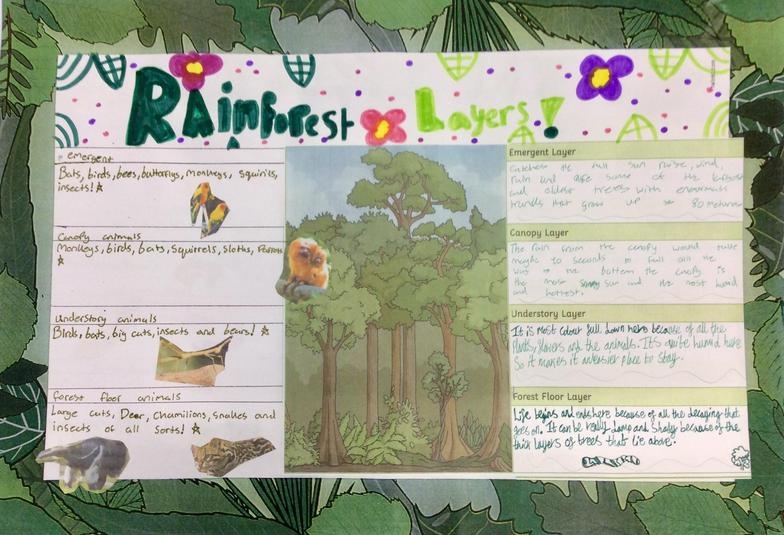 RAinforest Layers!
emergent
Bats, birds, bees, butterflys, monkeys, squirrils,
insects!
Canopy animals
Monkeys, birds, bats, Squirrels, Sloths, Parrots
Understory animals
Birds, bats, big cats, insects and bears!
Forest floor animals
Large cats, Deer, Chamilions, snakes and
insects of all sorts!
Emergent Layer
the full sun
rain and are some of the
and oldest trees with
trunks that grow up to 80
Canopy Layer
The rain from the canopy would take
maybe 10 seconds to fall all the
way to the bottem the canopy is
the most sun and the most humid
and hottest.
Understory Layer
It is most colour full down here because of all the
Plants, flowers and the animals. It's quite humid here
So it makes it a place to stay.
Forest Floor Layer
Life begins and ends here because of all the decaying that
goes on. It can be really damp and Shady because of the
thick layers of trees that lie above.